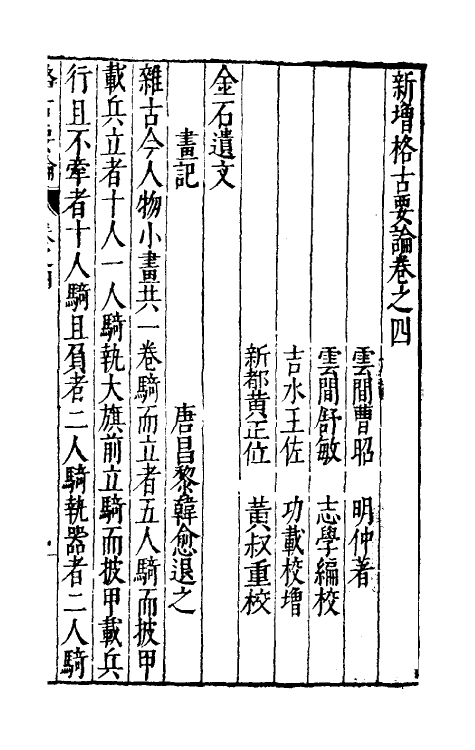 新增格古要論卷之四
雲間曹昭 明仲著
雲間舒敏 志學編校
吉水王佐 功載校增
新都黃正位 黃叔重校
金石遺文
畫記 唐昌黎韓愈退之
雜古今人物小畫共一卷騎而立者五人騎而披甲
載兵立者十人一人騎執大旗前立騎而披甲載兵
行且不牽者十人騎且負者二人騎執器者二人騎
格古要論 卷之四